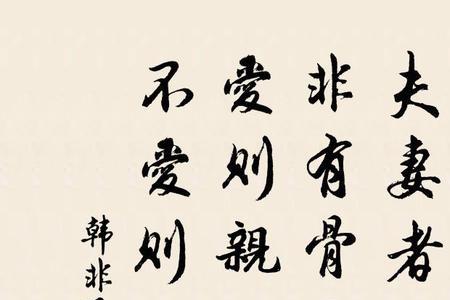 夫妻者
非有骨
愛则親
不愛则
韩非